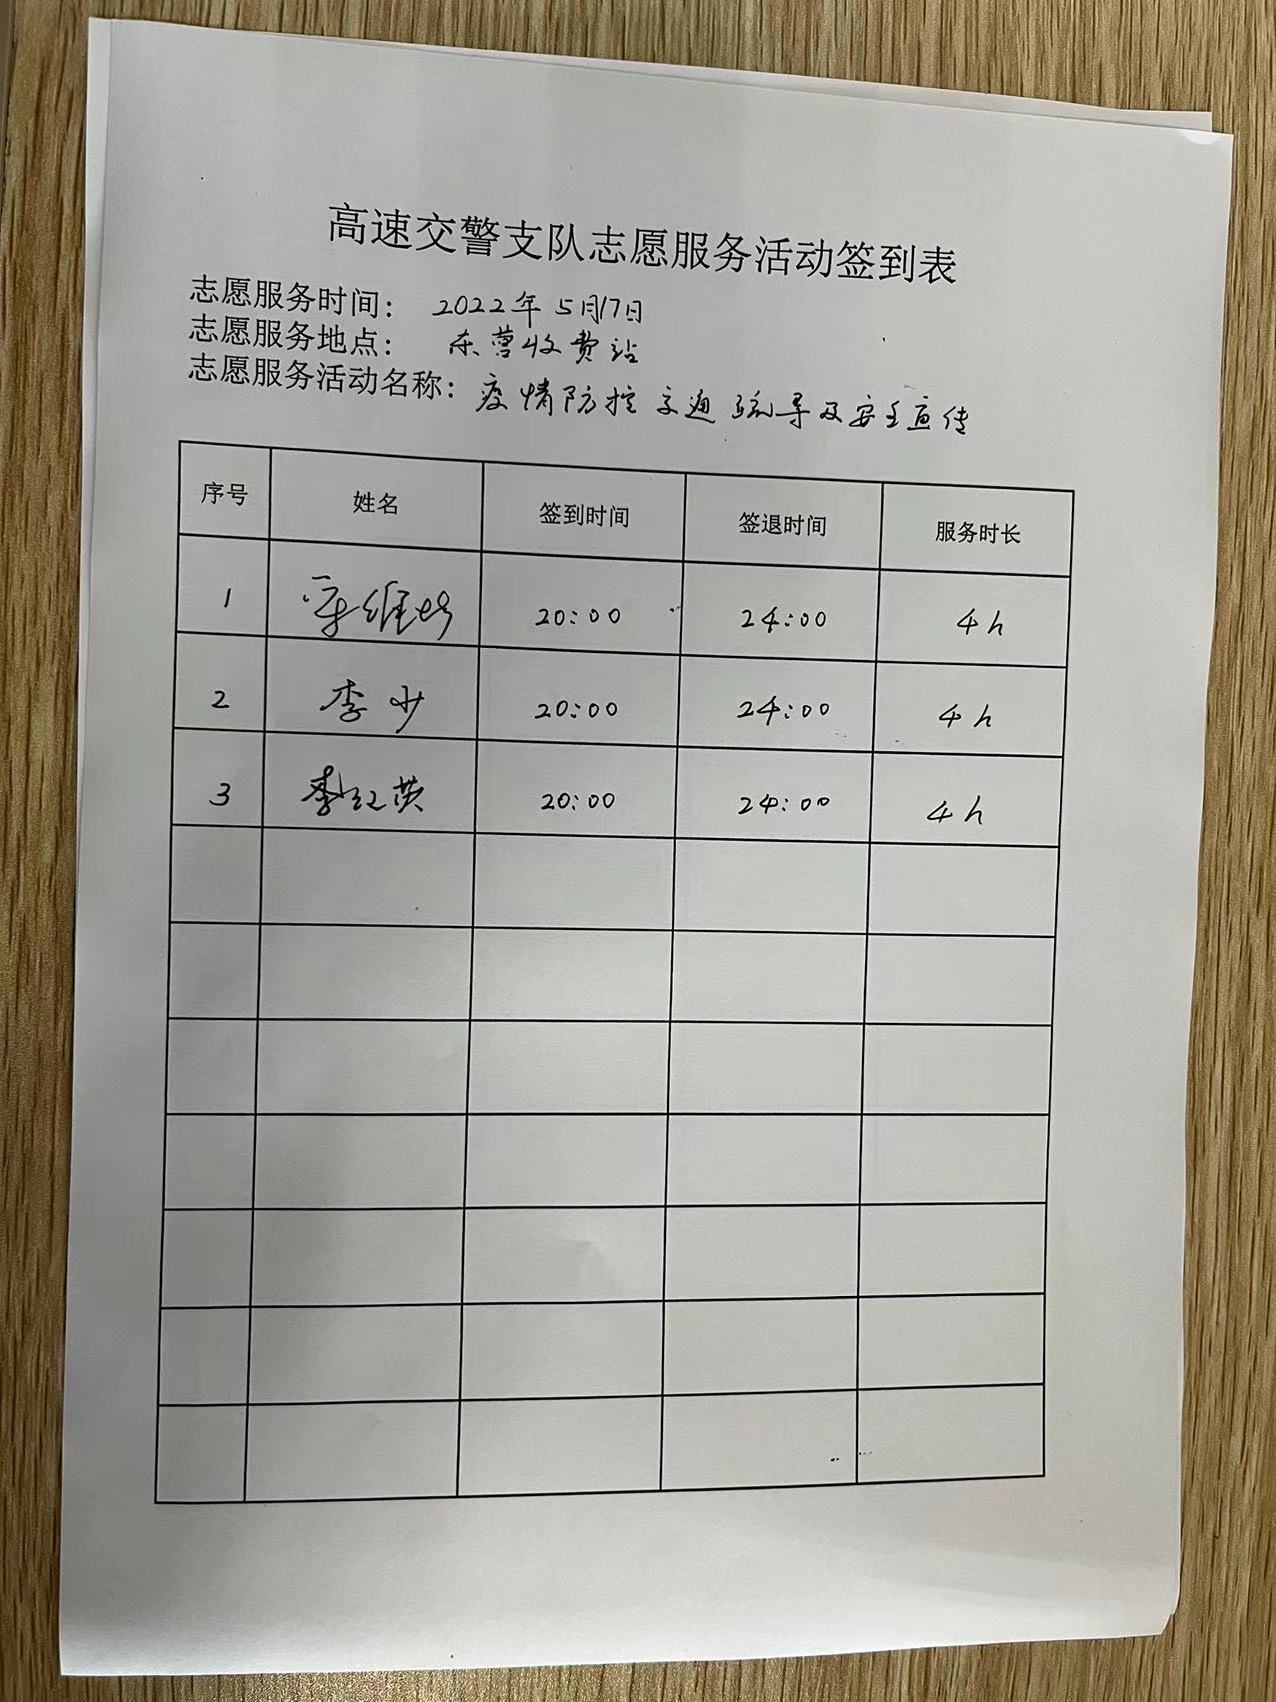 高速交警支队志愿服务活动签到表
志愿服务时间： 2022年5月17日
志愿服务地点： 东营收费站
志愿服务活动名称：疫情防控交通疏导及安全宣传
序号 姓名 签到时间 签退时间 服务时长
1 20:00 24:00 4h
2 李少 20:00 24:00 4h
3 李红英 20:00 24:00 4h